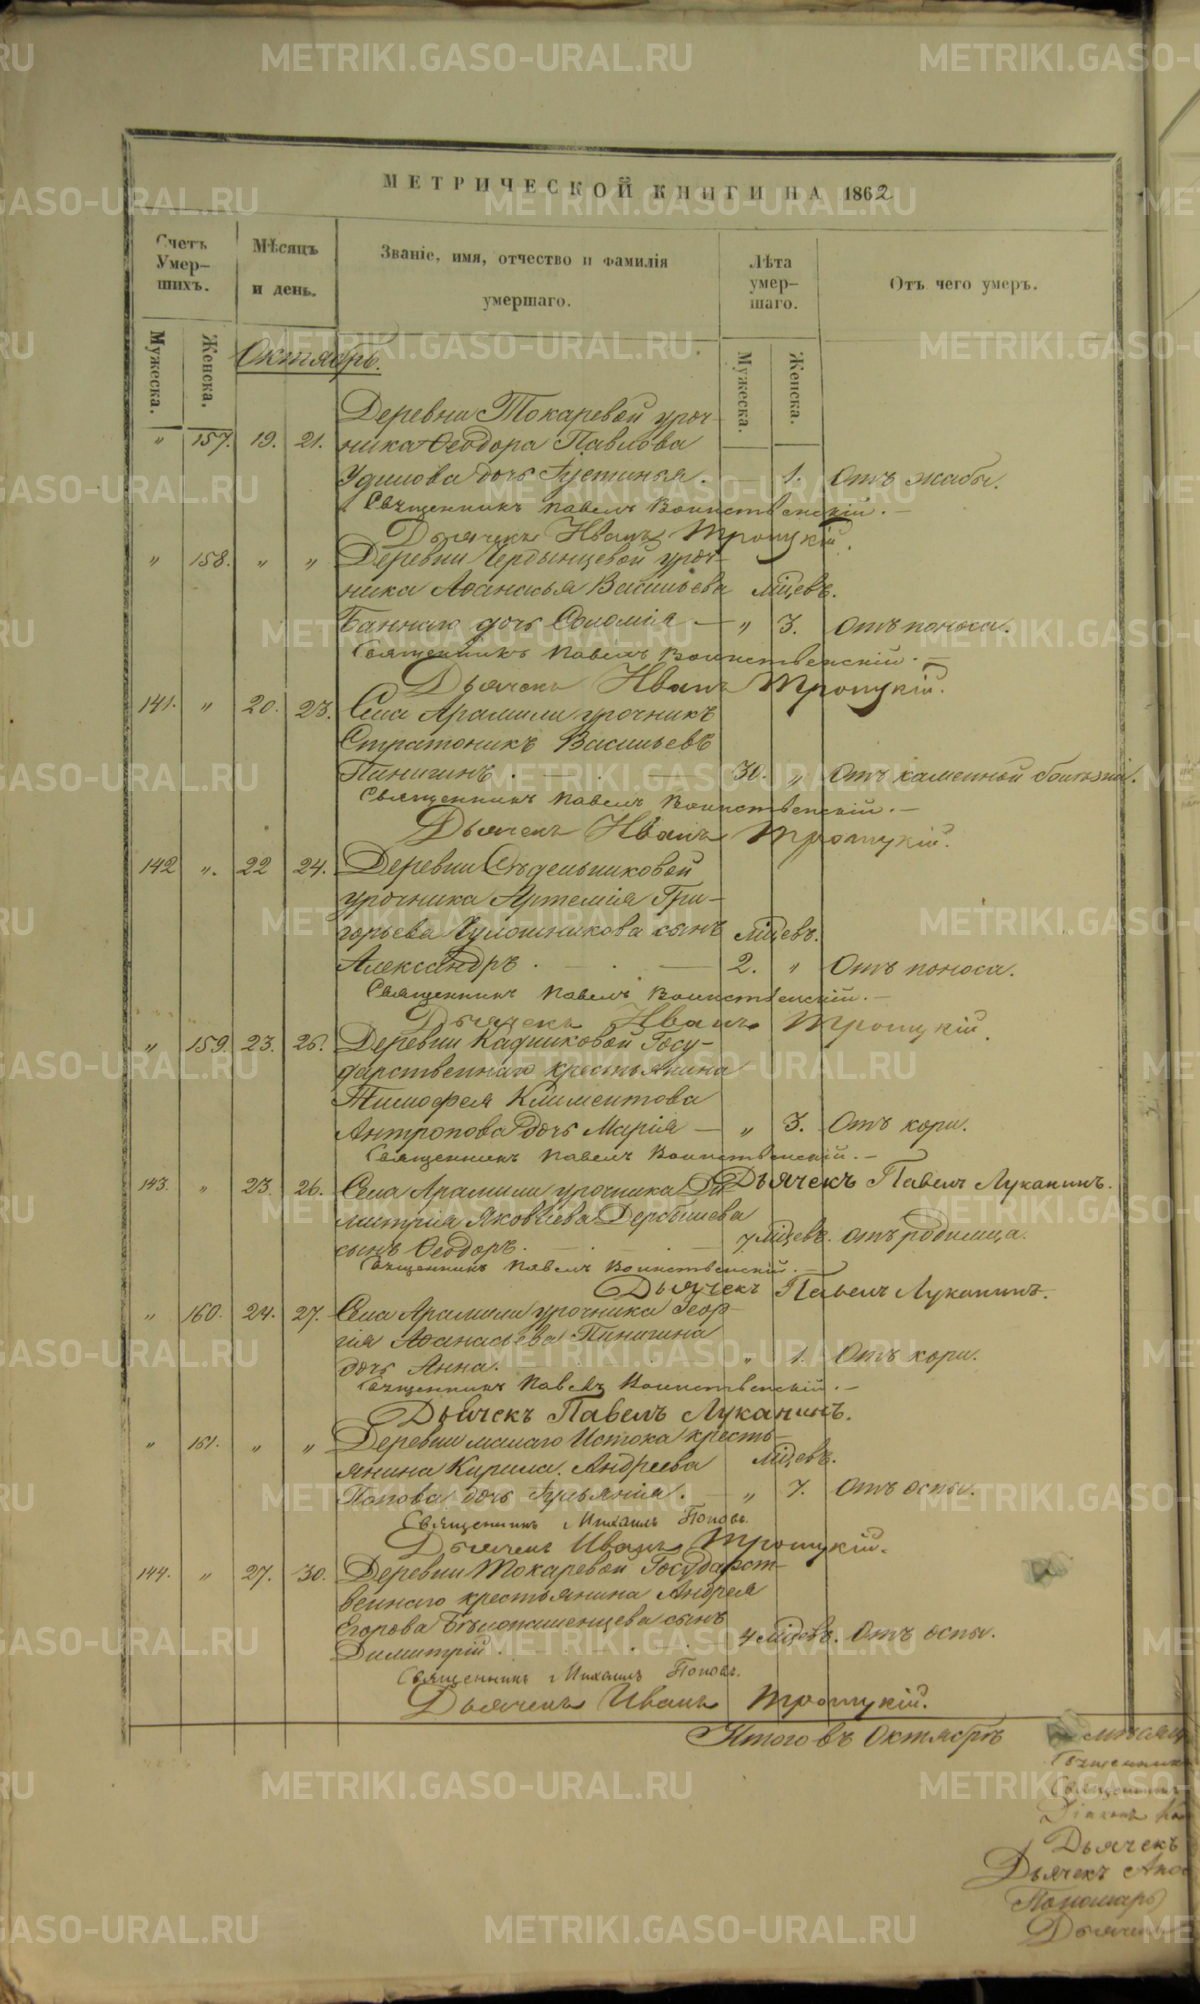 МЕТРИЧЕСКОЙ КНИГИ НА 1862
Счетъ Умер-шихъ.
Мѣсяцъ и день.
Званіе, имя, отчество и фамилія умершаго.
Лѣта умер-шаго.
Отъ чего умеръ.
Мужеска.
Женска.
Мужеска.
Женска.
Октябрь.
Деревни Токаревой уроч-
" 157. 19. 21. ника Ѳеодора Павлова
дочь Іустинья. 1. Отъ жабы.
Священникъ Павелъ Воинственскій.
Дьячекъ Иванъ Троицкій.
" 158. " " Деревни Чердынцевой уроч-
ника Аѳанасья Васильева мѣсцевъ.
дочь Соломія — " 3. Отъ поноса.
Священникъ Павелъ Воинственскій.
Дьячекъ Иванъ Троицкій.
141. " 20. 23. Села Арамили урочникъ
Стратоникъ Васильевъ
Пинигинъ. 30. " Отъ каменной болѣзни.
Священникъ Павелъ Воинственскій.
Дьячекъ Иванъ Троицкій.
142 ". 22 24. Деревни Сѣдельниковой
урочника Артемія Гри-
горьева сынъ мѣсцевъ.
Александръ. 2. " Отъ поноса.
Священникъ Павелъ Воинственскій.
Дьячекъ Иванъ Троицкій.
" 159. 23. 26. Деревни Кадниковой Госу-
дарственнаго крестьянина
Тимофея Климентова
Антропова дочь Марія — " 3. Отъ кори.
Священникъ Павелъ Воинственскій.
Дьячекъ Павелъ Луканинъ.
143. " 23. 26. Села Арамили урочника Ди
митрія Яковлева Дербышева
сынъ Ѳеодоръ. 7 мѣсцевъ. отъ родимца.
Священникъ Павелъ Воинственскій.
Дьячекъ Павелъ Луканинъ.
" 160. 24. 27. Села Арамили урочника Геор-
гія Аѳанасьева Пинигина
дочь Анна. " 1. Отъ кори.
Священникъ Павелъ Воинственскій.
Дьячекъ Павелъ Луканинъ.
" 161. " " Деревни малаго Истока кресть-
янина Кирила Андреева мѣсцевъ.
Попова дочь Іульянія. " 7. Отъ оспы.
Священникъ Михаилъ Поповъ.
Дьячекъ Иванъ Троицкій.
144. " 27. 30. Деревни Токаревой Государст-
веннаго крестьянина Андрея
Егорова Бѣлопашенцева сынъ
Димитрій. 4 мѣсцевъ. Отъ оспы.
Священникъ Михаилъ Поповъ.
Дьячекъ Иванъ Троицкій.
Итого въ Октябрѣ мѣсяц
Священникъ
Священникъ
Діаконъ
Дьячекъ
Дьячекъ
Пономарь
Дьячекъ
METRIKI.GASO-URAL.RU